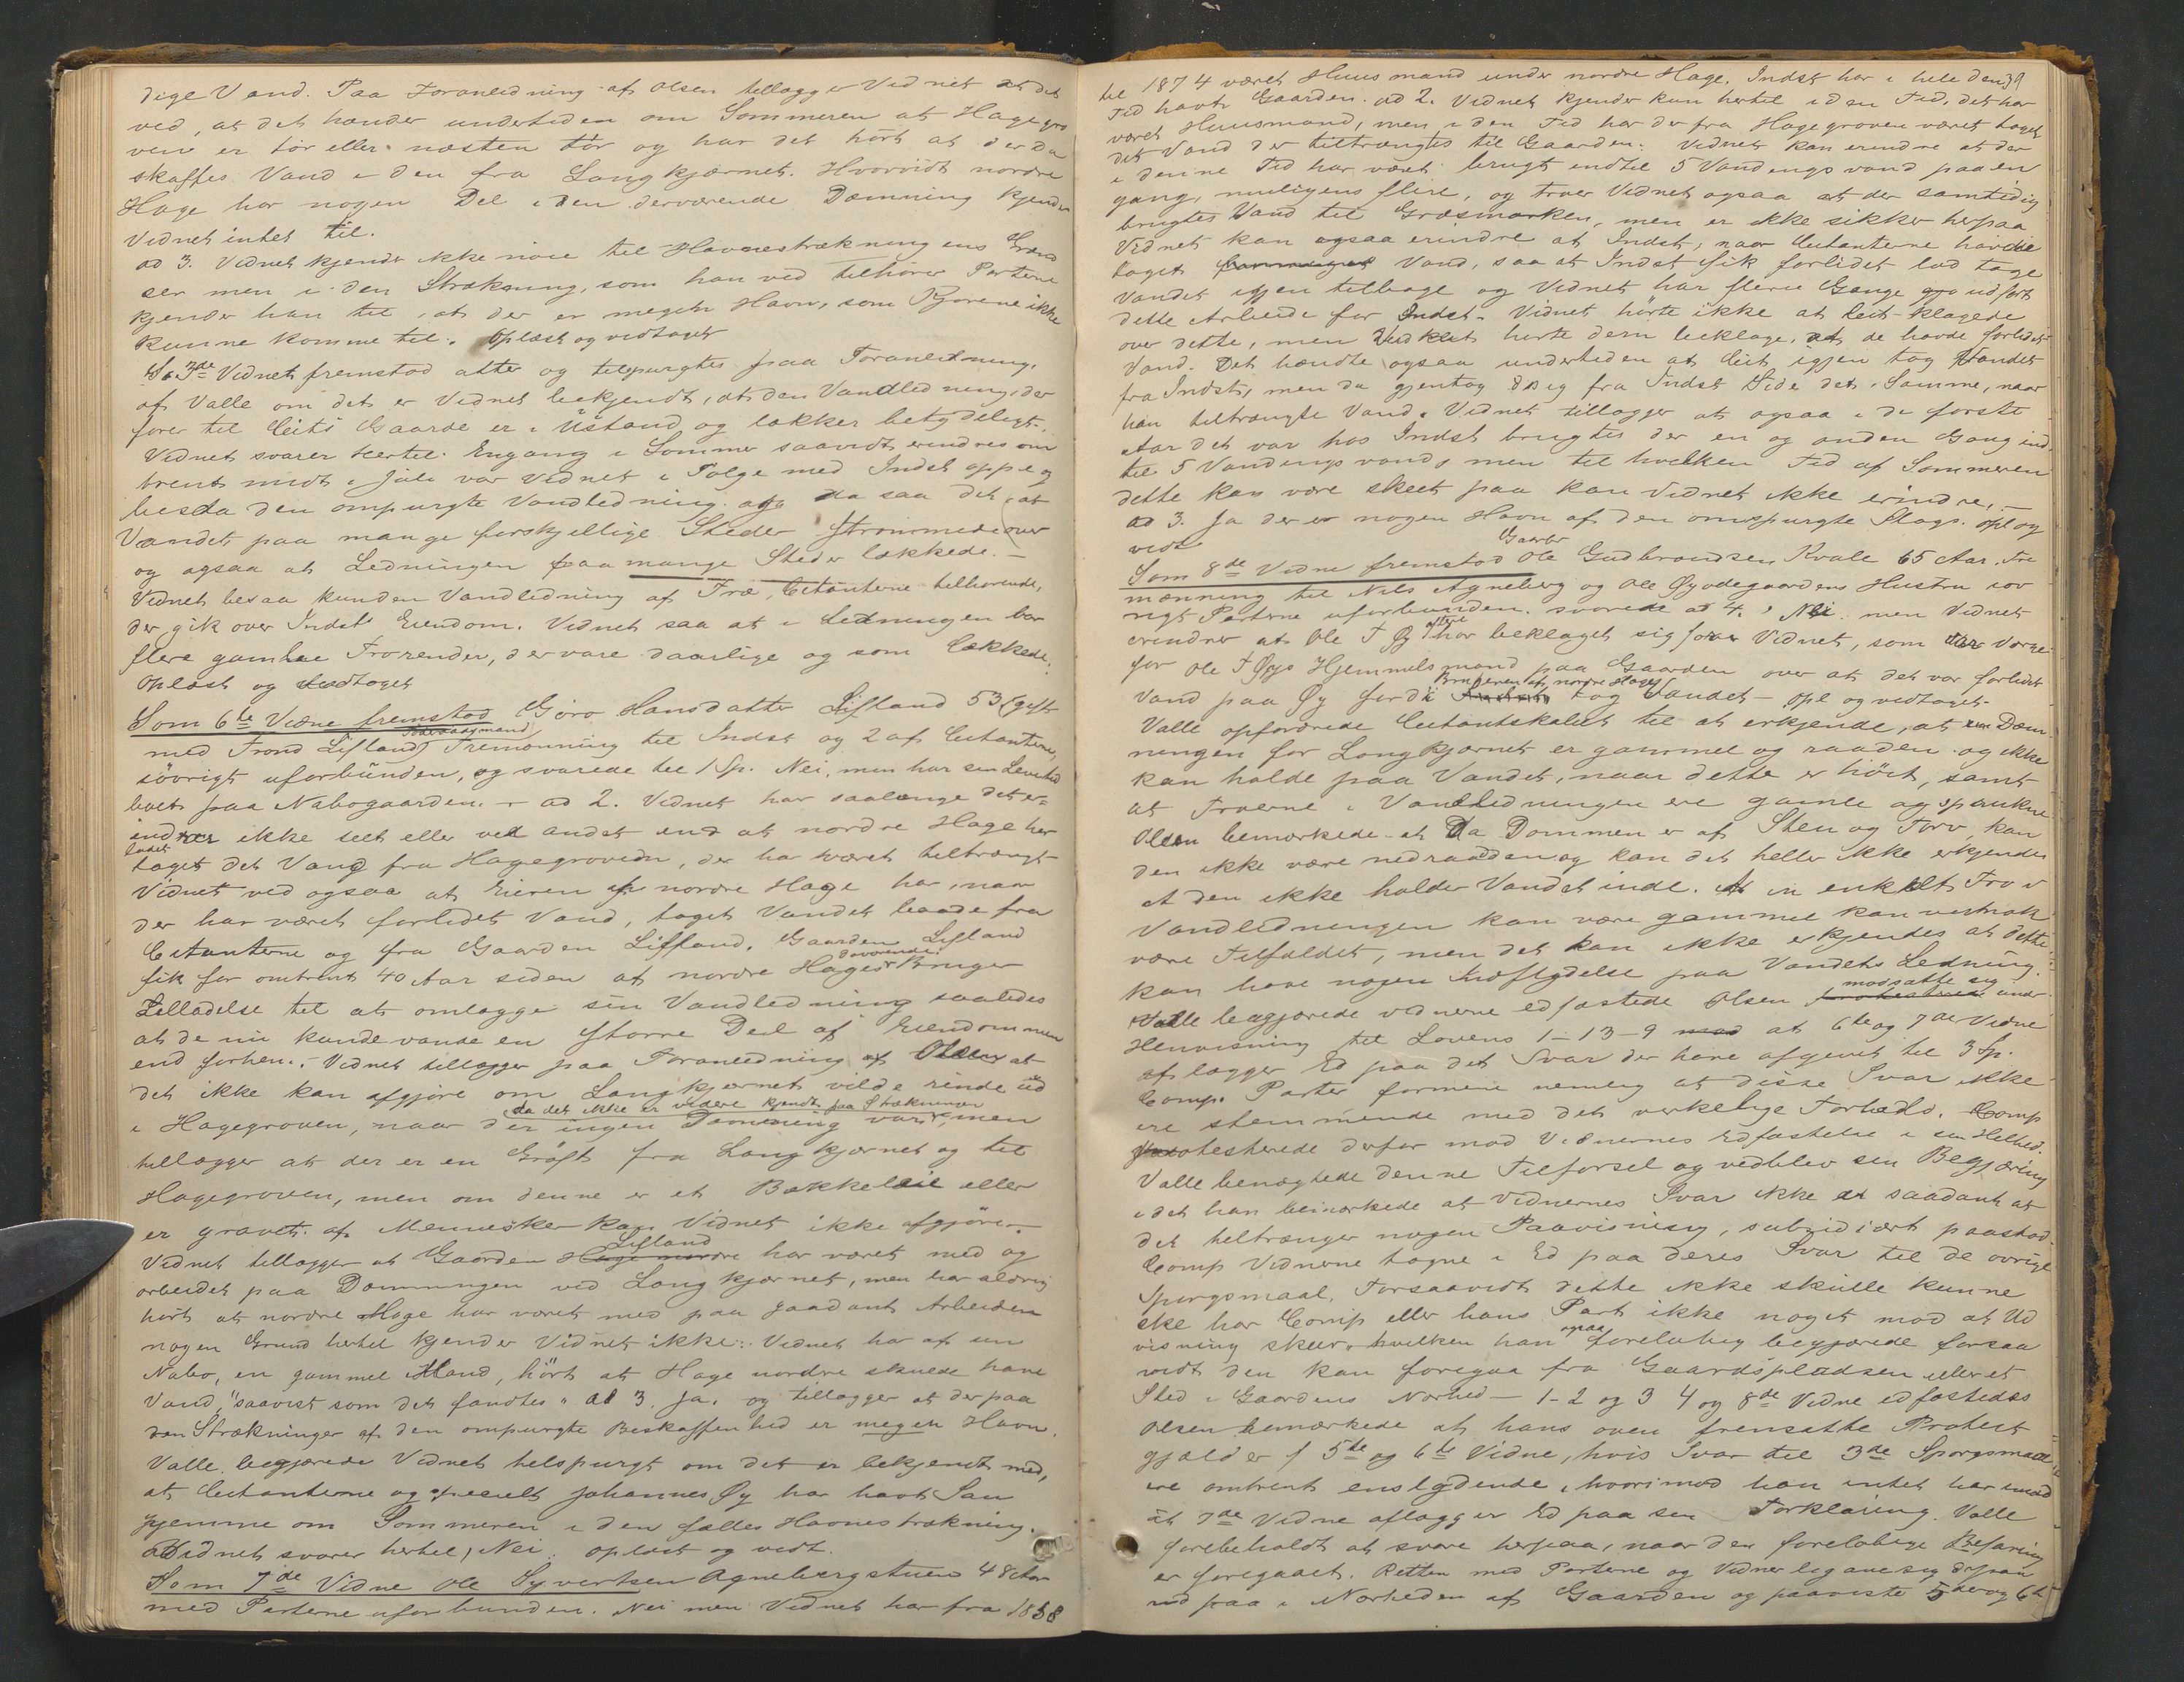 dige Vand. Paa Foranledning af Olsen tillægger Vidnet at det
ved, at det hænder undertiden om Sommeren at Hagegro
ven er tør eller næsten tør og har det hørt at der da
skaffes Vand i den fra Langkjærnet. Hvorvidt nordre
Hage har nogen Del i den derværende Dæmning kjender
Vidnet intet til.
ad 3. Vidnet kjender ikke nøie til Havnestrækningens Grænd
ser men i den Strækning, som han ved tilhører Parterne
kjender han til, at der er megen Havn, som Kjørene ikke
kunne komme til. Oplæst og vedtaget
3de Vidnet fremstod atter og tilspurgtes paa Foranledning
af Valle om det er Vidnet bekjendt, at den Vandledning, der
fører til Citits Gaarde er i Ustand og lækker betydeligt.
Vidnet svarer hertil: Engang i Sommer saavidt erindres om
trent midt i Juli var Vidnet i Følge med Indst oppe og
besaa den ompurgte Vandledning og da saa det, at
Vandet paa mange forskjellige Steder strømmede over
og ogsaa at Ledningen paa mange Steder lækkede. –
Vidnet besaa kun den Vandledning af Træ, Citanterne tilhørende,
der gik over Indst Eiendom. Vidnet saa at i Ledningen var
flere gamle Trærender, der vare daarlige og som lækkede.
Oplæst og vedtaget
Som 6te Vidne fremstod Gjøro Hansdatter Lifland 53 (gift
med Trond Lifland) Tremænning til Indst og 2 af Citanterne,
iøvrigt uforbunden, og svarede til 1 Sp. Nei, men har sin Levetid
boet paa Nabogaarden. – ad 2. Vidnet har saalænge det er
indrer ikke seet eller ved andet end at nordre Hage har
ladet
taget det Vand fra Hagegroven, der har været tiltrængt
Vidnet ved ogsaa at Eieren af nordre Hage har, naar
der har været forlidet Vand, taget Vandet baade fra
Citanterne og fra Gaarden Lifland. Gaarden Lifland
daværende
fik for omtrent 40 Aar siden af nordre Hages Bruger
Tilladelse til at omlægge sin Vandledning saaledes
at de nu kunde vande en større Deel af Eiendommen
end forhen. – Vidnet tillægger paa Foranledning af Olsen at
det ikke kan afgjøre om Langkjærnet vilde rinde ud
da det ikke er videre kjendt paa Strækningen
i Hagegroven, naar der ingen Dæmning var, men
tillægger at der er en Grøft fra Langkjærnet og til
Hagegroven, men om denne er et Bækkeleie eller
er gravet af Mennesker kan Vidnet ikke afgjøre. –
Lifland
Vidnet tillægger at Gaarden Hage nordre har været med og
arbeidet paa Dæmningen ved Langkjærnet, men har aldrig
hørt at nordre Hage har været med paa saadant Arbeide
nogen Grund hertil kjender Vidnet ikke. Vidnet har af en
Nabo, en gammel Mand, hørt at Hage nordre skulde have
Vand, "saavist som det fandtes". ad 3. Ja, og tillægger at der paa
den Strækninger af den ompurgte Beskaffenhed er megen Havn.
Valle begjærede Vidnet tilspurgt om det er bekjendt med,
at Citanterne og specielt Johannes Øy har havt Sau
hjemme om Sommeren i den fælles Havnestrækning.
Vidnet svarer hertil, Nei. oplæst og vedt.
Som 7de Vidne Ole Syvertsen Agnebergstuen 48 Aar
med Parterne uforbunden. Nei men Vidnet har fra 1858
til 1874 været Huusmand under nordre Hage. Indst har i hele den 39
Tid havt Gaarden. ad 2. Vidnet kjender kun hertil i den Tid, det har
været Huusmand, men i den Tid har der fra Hagegroven været taget
det Vand der tiltrængtes til Gaarden. Vidnet kan erindre at der
i denne Tid har været brugt indtil 5 Vandings vand paa en
gang, muligens flere, og troer Vidnet ogsaa at der samtidig
brugtes Vand til Græsmarken, men er ikke sikker herpaa
Vidnet kan ogsaa erindre at Indst, naar Citanterne havde
taget Vand, saa at Indst fik forlidet lod tage
Vandet igjen tilbage og Vidnet har flere Gange udført
dette Arbeide for Indst. Vidnet hørte ikke at Cit. klagede
over dette, men Vidnet hørte dem beklage, at de havde forlidet
Vand. Det hændte ogsaa undertiden at Cit. igjen tog Vandet
fra Indst, men da gjentog sig fra Indst Side det Samme, naar
han tiltrængte Vand. Vidnet tillægger at ogsaa i de første
Aar det var hos Indst brugtes der en og anden Gang ind
til 5 Vandings vand, men til hvilken Tid af Sommeren
dette kan være skeet paa kan Vidnet ikke erindre. –
ad 3. Ja der er nogen Havn af den omspurgte Slags. opl og
vedt
Gaarbr
Som 8de Vidne fremstod Ole Gudbrandsen Kvale 65 Aar. Tre
mænning til Nils Agneberg og Ole Øyodegaardens Hustru iøv
rigt Parterne uforbunden. svarede ad 1. Nei men Vidnet
oftere
erindrer at Ole T Øy har beklaget sig for Vidnet, som var Verge
for Ole T Øys Hjemmelsmand paa Gaarden over at det var forlidet
Brugeren af nordre Hage
Vand paa Øy fordi tog Vandet – opl og vedtaget.
Valle opfordrede Citantskabet til at erkjende, at Dæm
ningen for Langkjærnet er gammel og raaden og ikke
kan holde paa Vandet, naar dette er høit, samt
at Trærne i Vandledningen ere gamle og sprukne
Olsen bemærkede at da Dammen er af Sten og Torv, kan
den ikke være nedraadden og kan det heller ikke erkjendes
at den ikke holder Vandet inde. At en enkelt Tro i
Vandledningen kan være gammel kan vistnok
være Tilfældet, men det kan ikke erkjendes at dette
kan have nogen Indflydelse paa Vandets Ledning.
modsatte sig
Valle begjærede vidnerne edfæstede Olsen protesterede under
Henvisning til Lovens 1-13-9 med at 6te og 7de Vidne
aflægger Ed paa det Svar der have afgivet til 3 Sp.
Comp. Parter formene nemlig at disse Svar ikke
ere stemmende med det virkelige Forhold. Comp
protesterede derfor mod Vidnernes Edfæstelse i sin Helhed.
Valle benægtede denne Tilførsel og vedblev sin Begjæring
idet han bemærkede at Vidnernes Svar ikke er saadant at
det tiltrænger nogen Paavisning, subsidiært paastod
Comp Vidnerne tagne i Ed paa deres Svar til de øvrige
Spørgsmaal. Forsaavidt dette ikke skulle kunne
ske har Comp eller hans Part ikke noget mod at Ud
ogsaa
visning skeer, hvilken han foreløbig begjærede forsaa
vidt den kan foregaa fra Gaardspladsen eller et
Sted i Gaardens Nærhed – 1-2 og 3 4 og 8de Vidne edfæstedes
Olsen bemærkede at hans oven fremsatte Protest
gjælder 5te og 6te Vidne, hvis Svar til 3de Spørgsmaal
ere omtrent enslydende, hvorimod han intet har imod
at 7de Vidne aflægger Ed paa sin Forklaring. Valle
forebeholdt at svare herpaa, naar den foreløbige Befaring
er foregaaet. Retten med Parterne og Vidner begave sig derpaa
ud paa i Nærheden af Gaarden og paaviste 5te og 6te